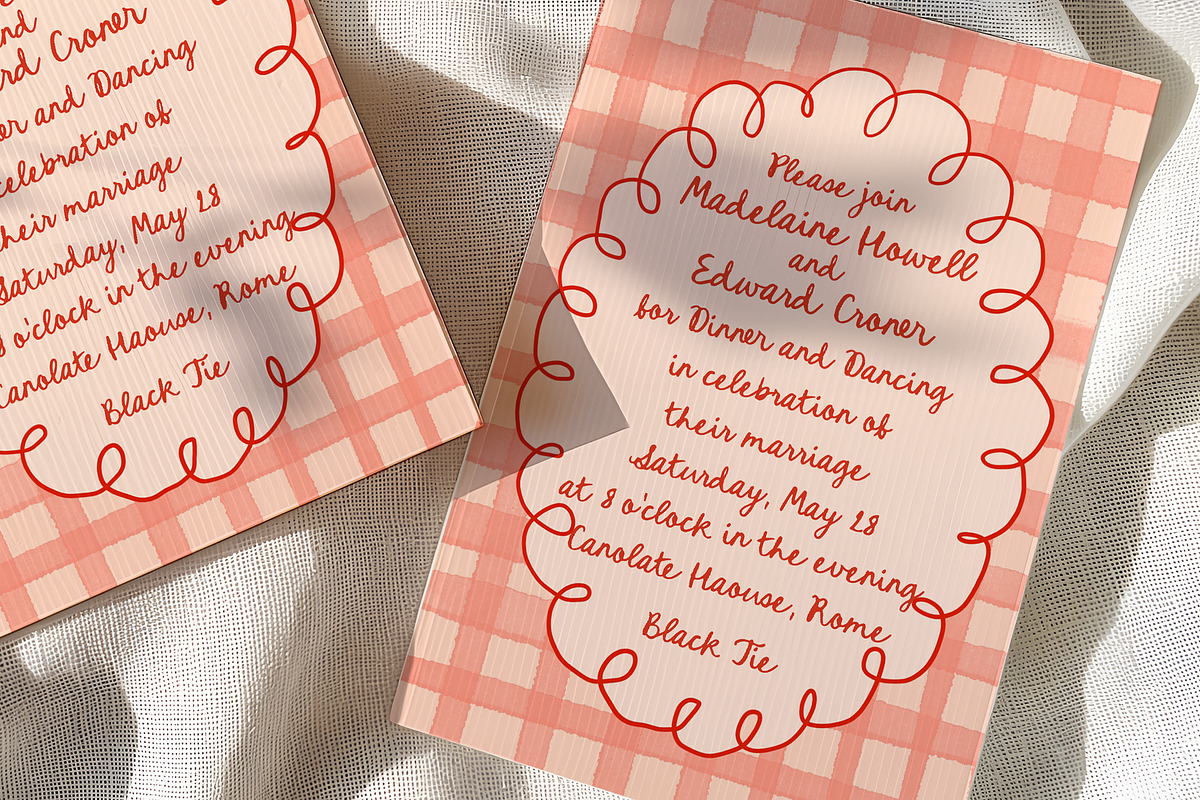 nd
rd Croner
er and Dancing
celebration of
their marriage
Saturday, May 28
8 o'clock in the evening
Canolate Haouse, Rome
Black Tie
Please join
Madelaine Howell
and
Edward Croner
for Dinner and Dancing
in celebration of
their marriage
Saturday, May 28
at 8 o'clock in the evening
Canolate Haouse, Rome
Black Tie